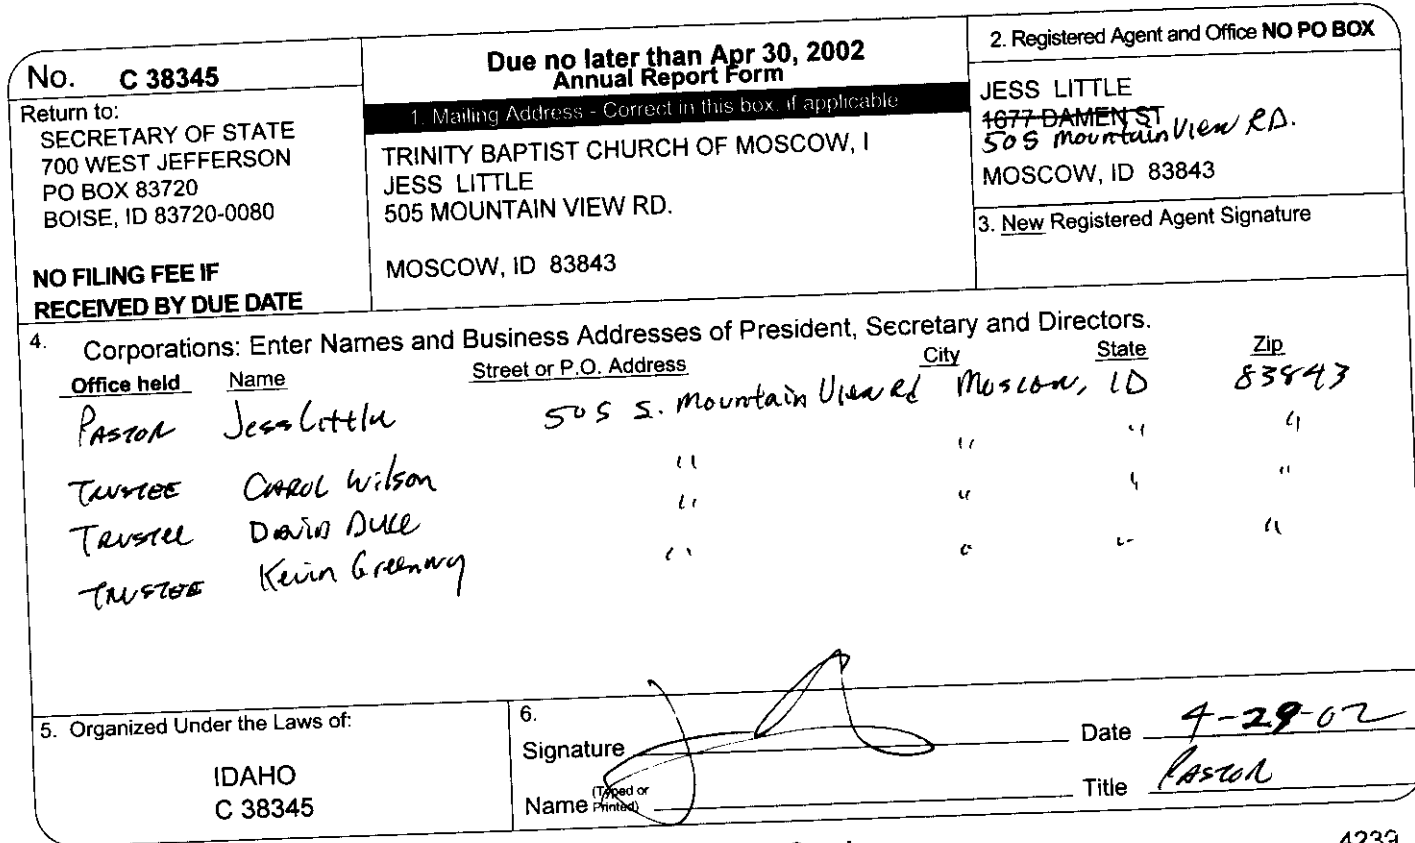 No. C 38345
Return to:
SECRETARY OF STATE
700 WEST JEFFERSON
PO BOX 83720
BOISE, ID 83720-0080
NO FILING FEE IF
RECEIVED BY DUE DATE
Due no later than Apr 30, 2002
Annual Report Form
1. Mailing Address - Correct in this box, if applicable
TRINITY BAPTIST CHURCH OF MOSCOW, I
JESS LITTLE
505 MOUNTAIN VIEW RD.
MOSCOW, ID 83843
2. Registered Agent and Office NO PO BOX
JESS LITTLE
1677 DAMEN ST
505 Mountain View RD.
MOSCOW, ID 83843
3. New Registered Agent Signature
4. Corporations: Enter Names and Business Addresses of President, Secretary and Directors.
Office held Name Street or P.O. Address City State Zip
PASTOR Jess Little 505 S. Mountain View Rd Moscow, ID 83843
TRUSTEE CAROL Wilson " " " "
TRUSTEE David Duce " " " "
TRUSTEE Kevin Greenwy " " " "
5. Organized Under the Laws of:
IDAHO
C 38345
6.
Signature Date 4-29-02
Name (Typed or Printed) Title PASTOR
4239